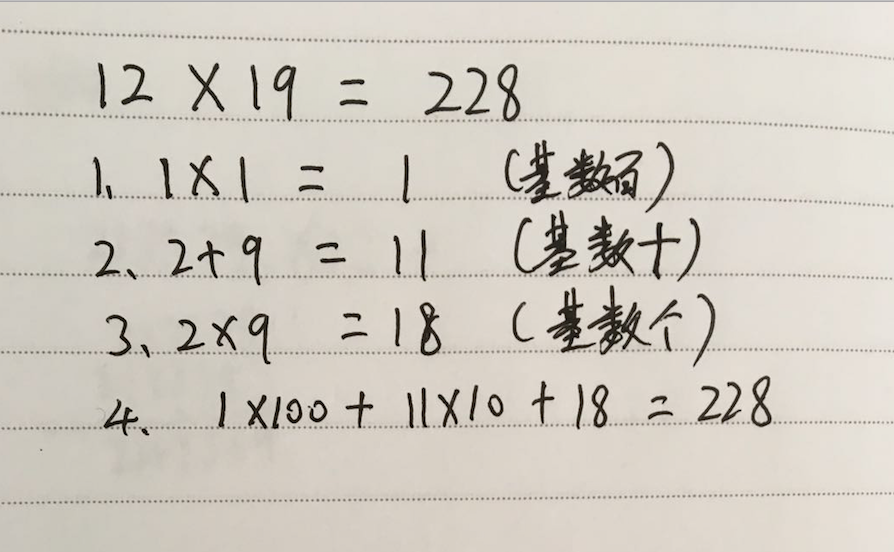 12 × 19 = 228
1、1×1 = 1 (基数百)
2、2+9 = 11 (基数十)
3、2×9 = 18 (基数个)
4、1×100 + 11×10 + 18 = 228